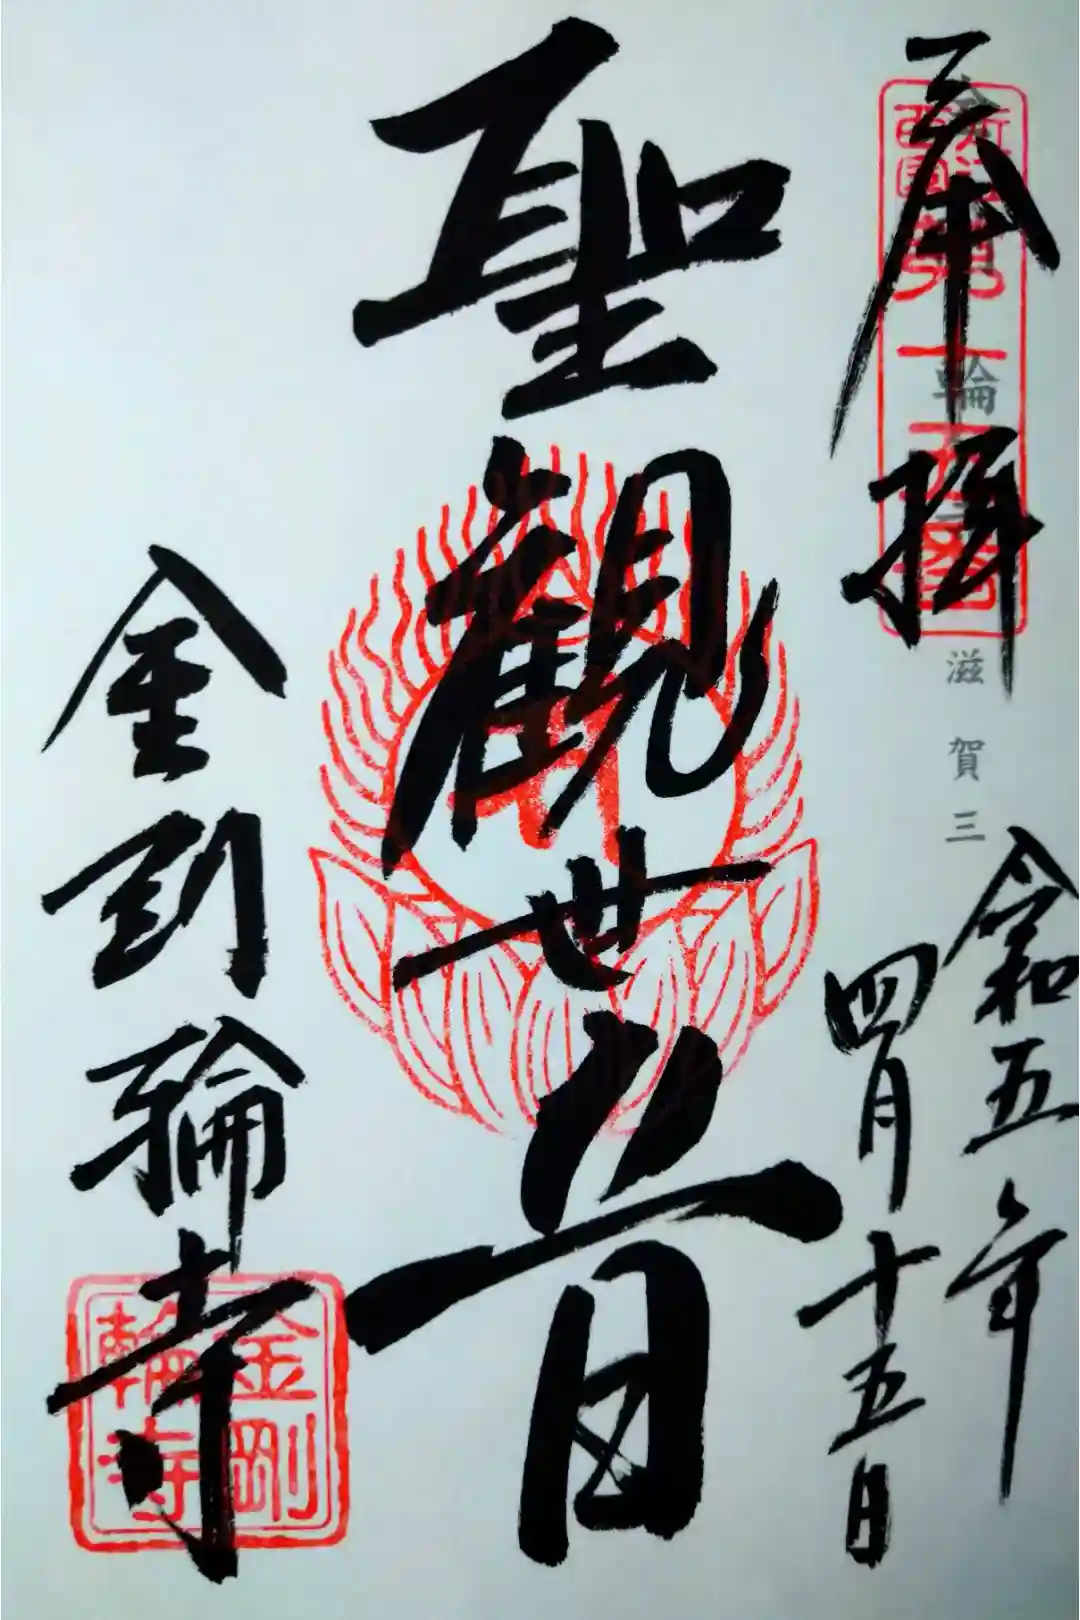 奉拝
令和五年
四月十五日
聖観世音
金剛輪寺
輪
滋賀三
金剛
輪寺